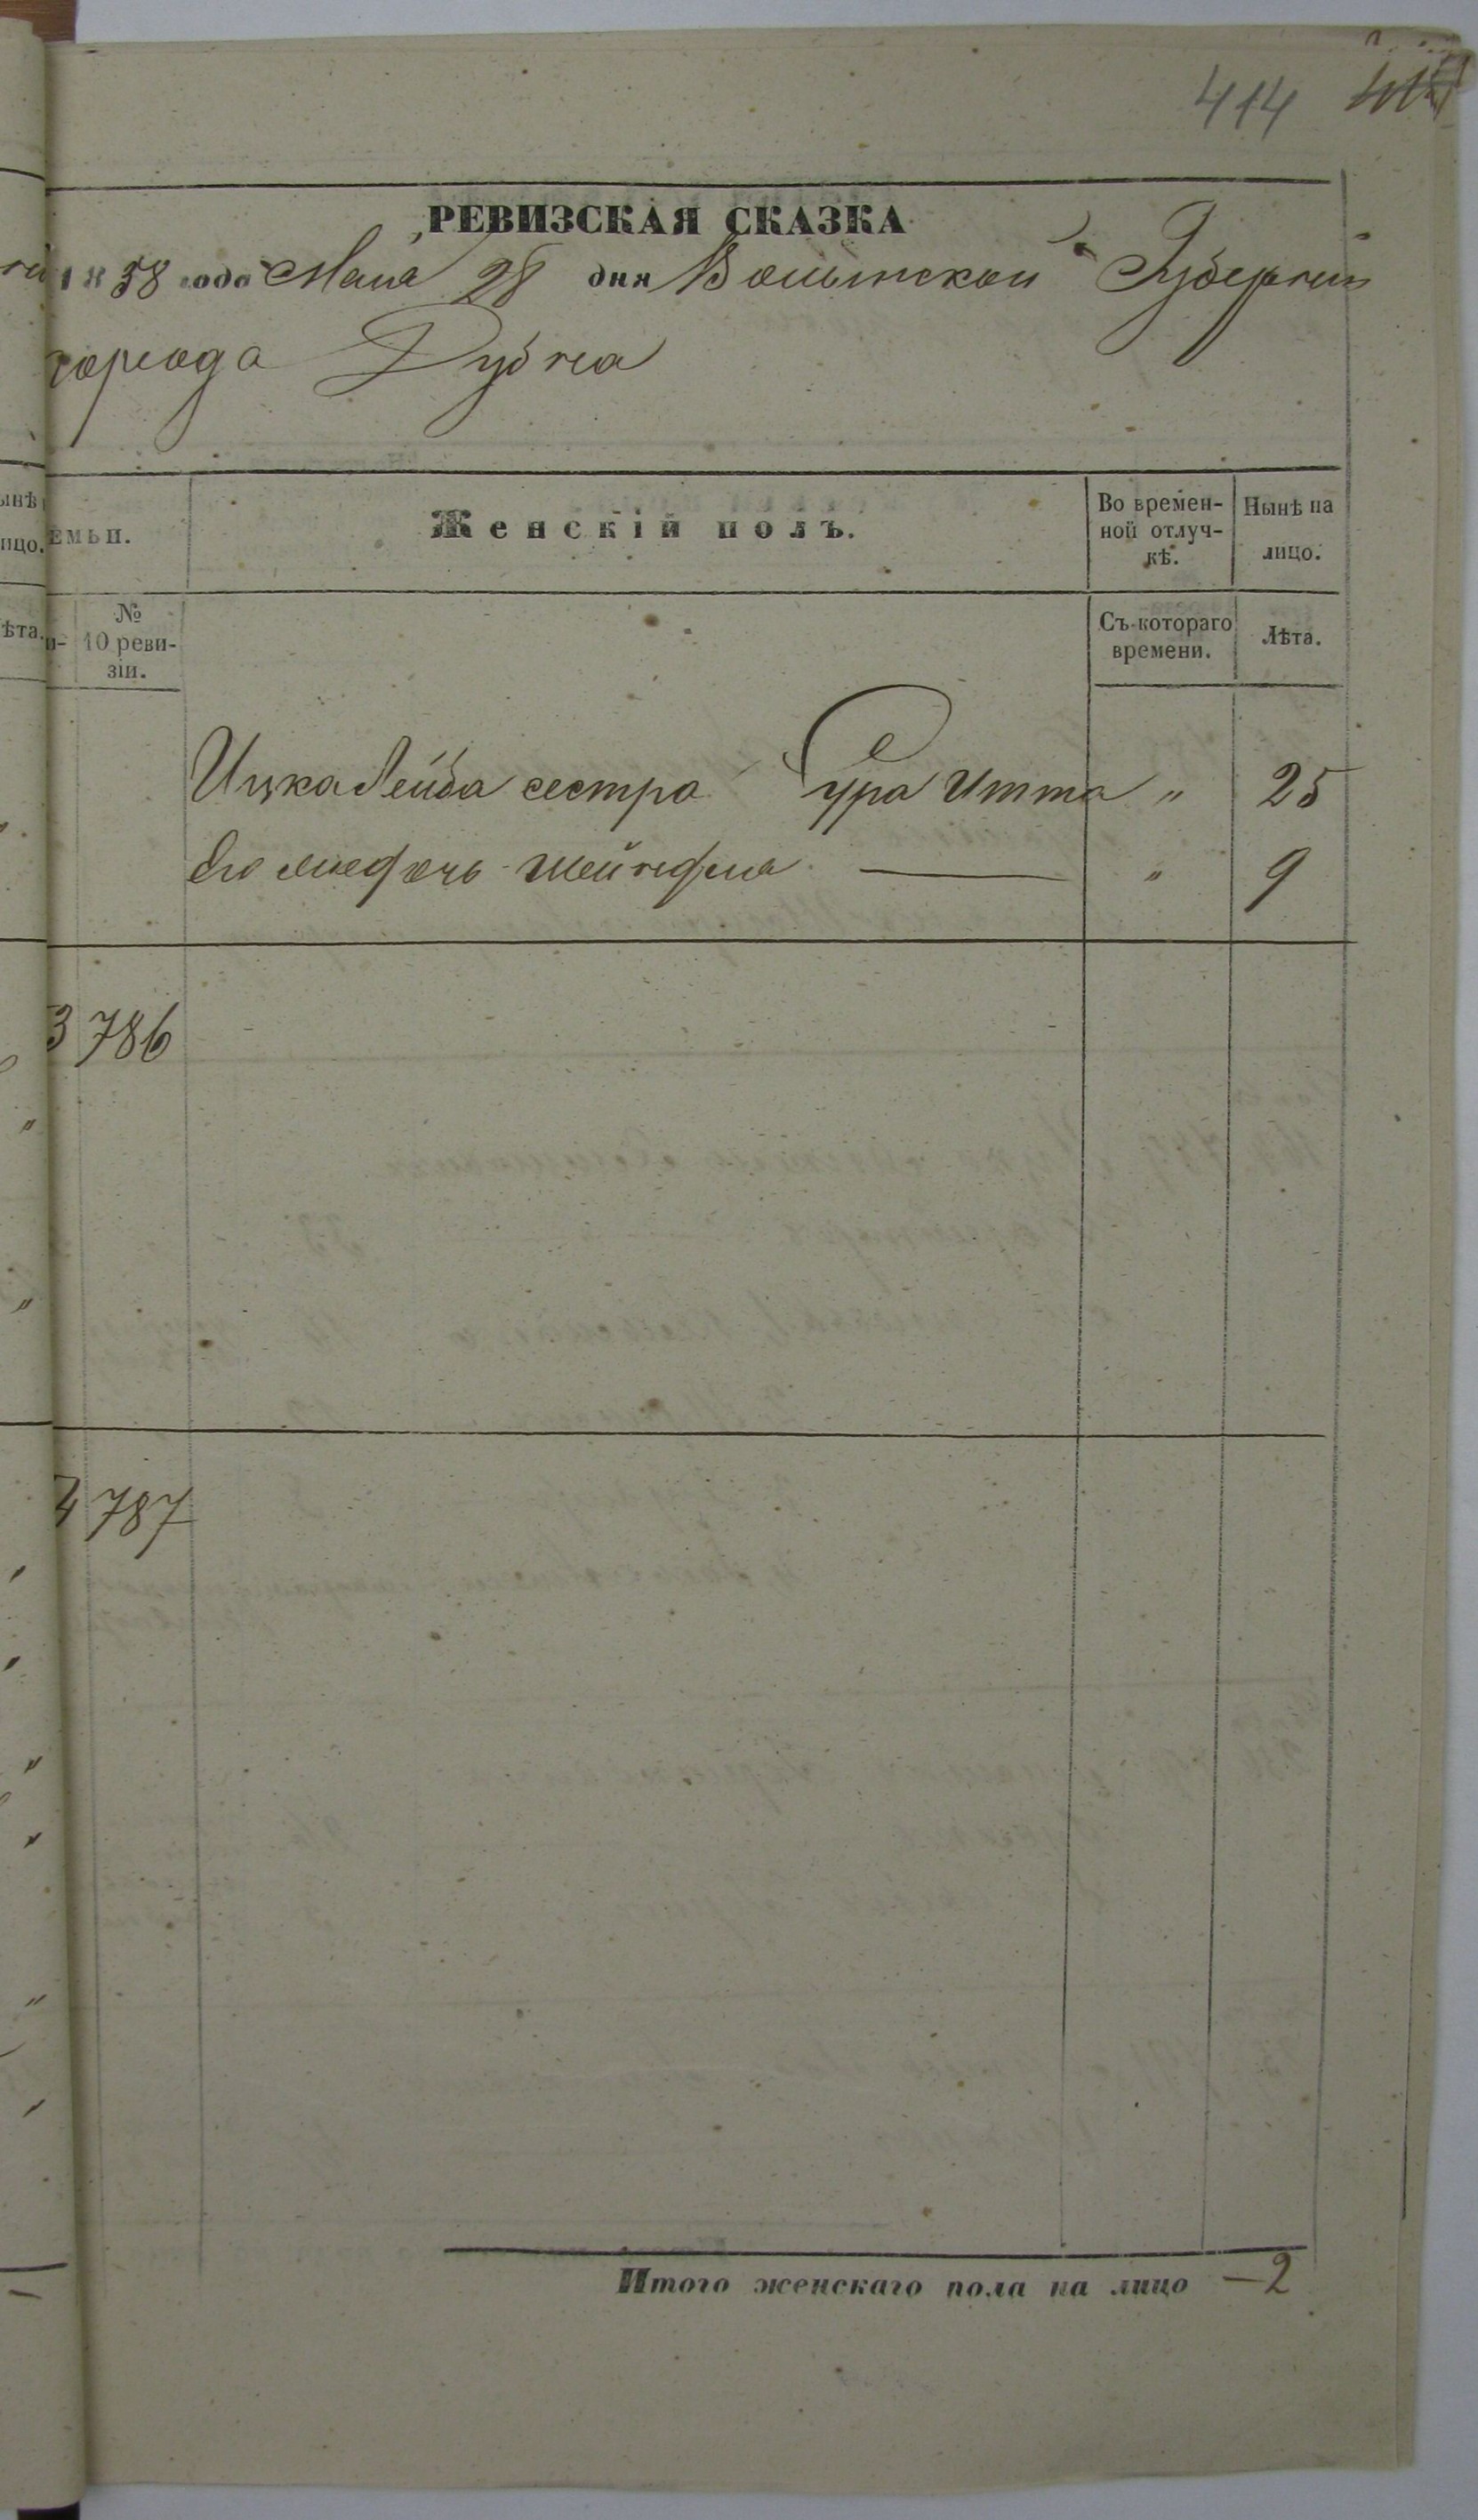 414
РЕВИЗСКАЯ СКАЗКА
1858 года Мая 28 дня Волынской Губернии
города Дубна
емьи.
Женскій полъ.
Во времен-
ной отлуч-
кѣ.
Нынѣ на
лицо.
№
10 реви-
зіи.
Съ котораго
времени.
Лѣта.
Ицка Лейба сестра Сура Итта " 25
Его же дочь Шейндля — " 9
3 786
4 787
Итого женскаго пола на лицо — 2